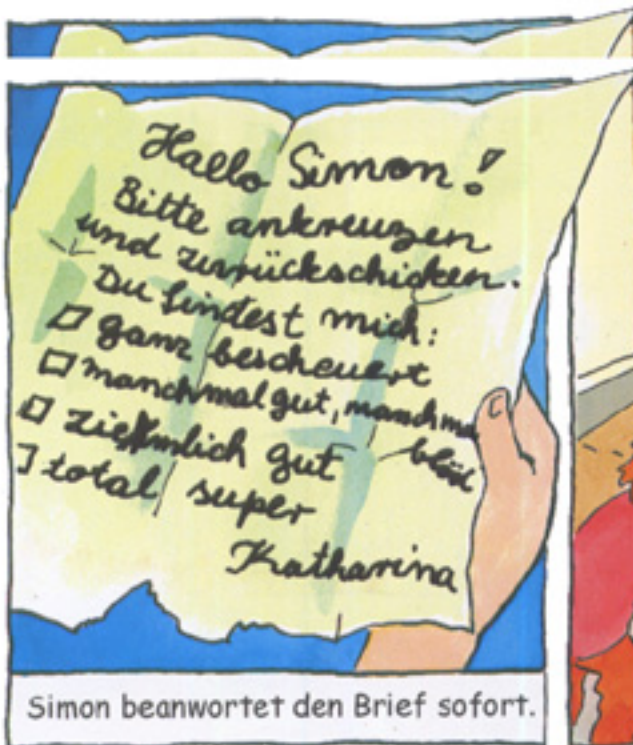 Hallo Simon!
Bitte ankreuzen
und zurückschicken.
Du findest mich:
ganz bescheuert
manchmal gut, manchma
blöd
ziemlich gut
total super
Katharina
Simon beanwortet den Brief sofort.